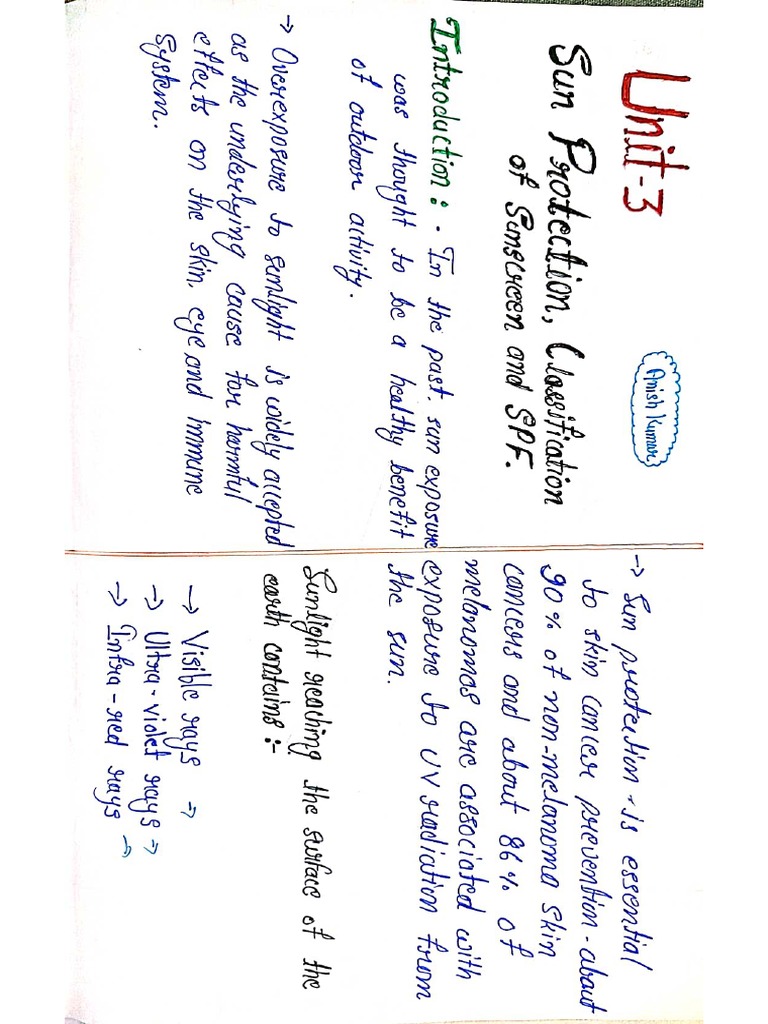 Unit-3
Anish Kumar
Sun Protection, Classification
of Sunscreen and SPF.
Introduction: • In the past, sun exposure
was thought to be a healthy benefit
of outdoor activity.
→ Overexposure to sunlight is widely accepted
as the underlying cause for harmful
effects on the skin, eye and immune
System.
→ Sun protection - is essential
to skin cancer prevention - about
90% of non-melanoma skin
cancers and about 86% of
melanomas are associated with
exposure to UV radiation from
the sun.
Sunlight reaching the surface of the
earth contains :-
→ Visible rays →
→ Ultra-violet rays →
→ Infra-red rays →